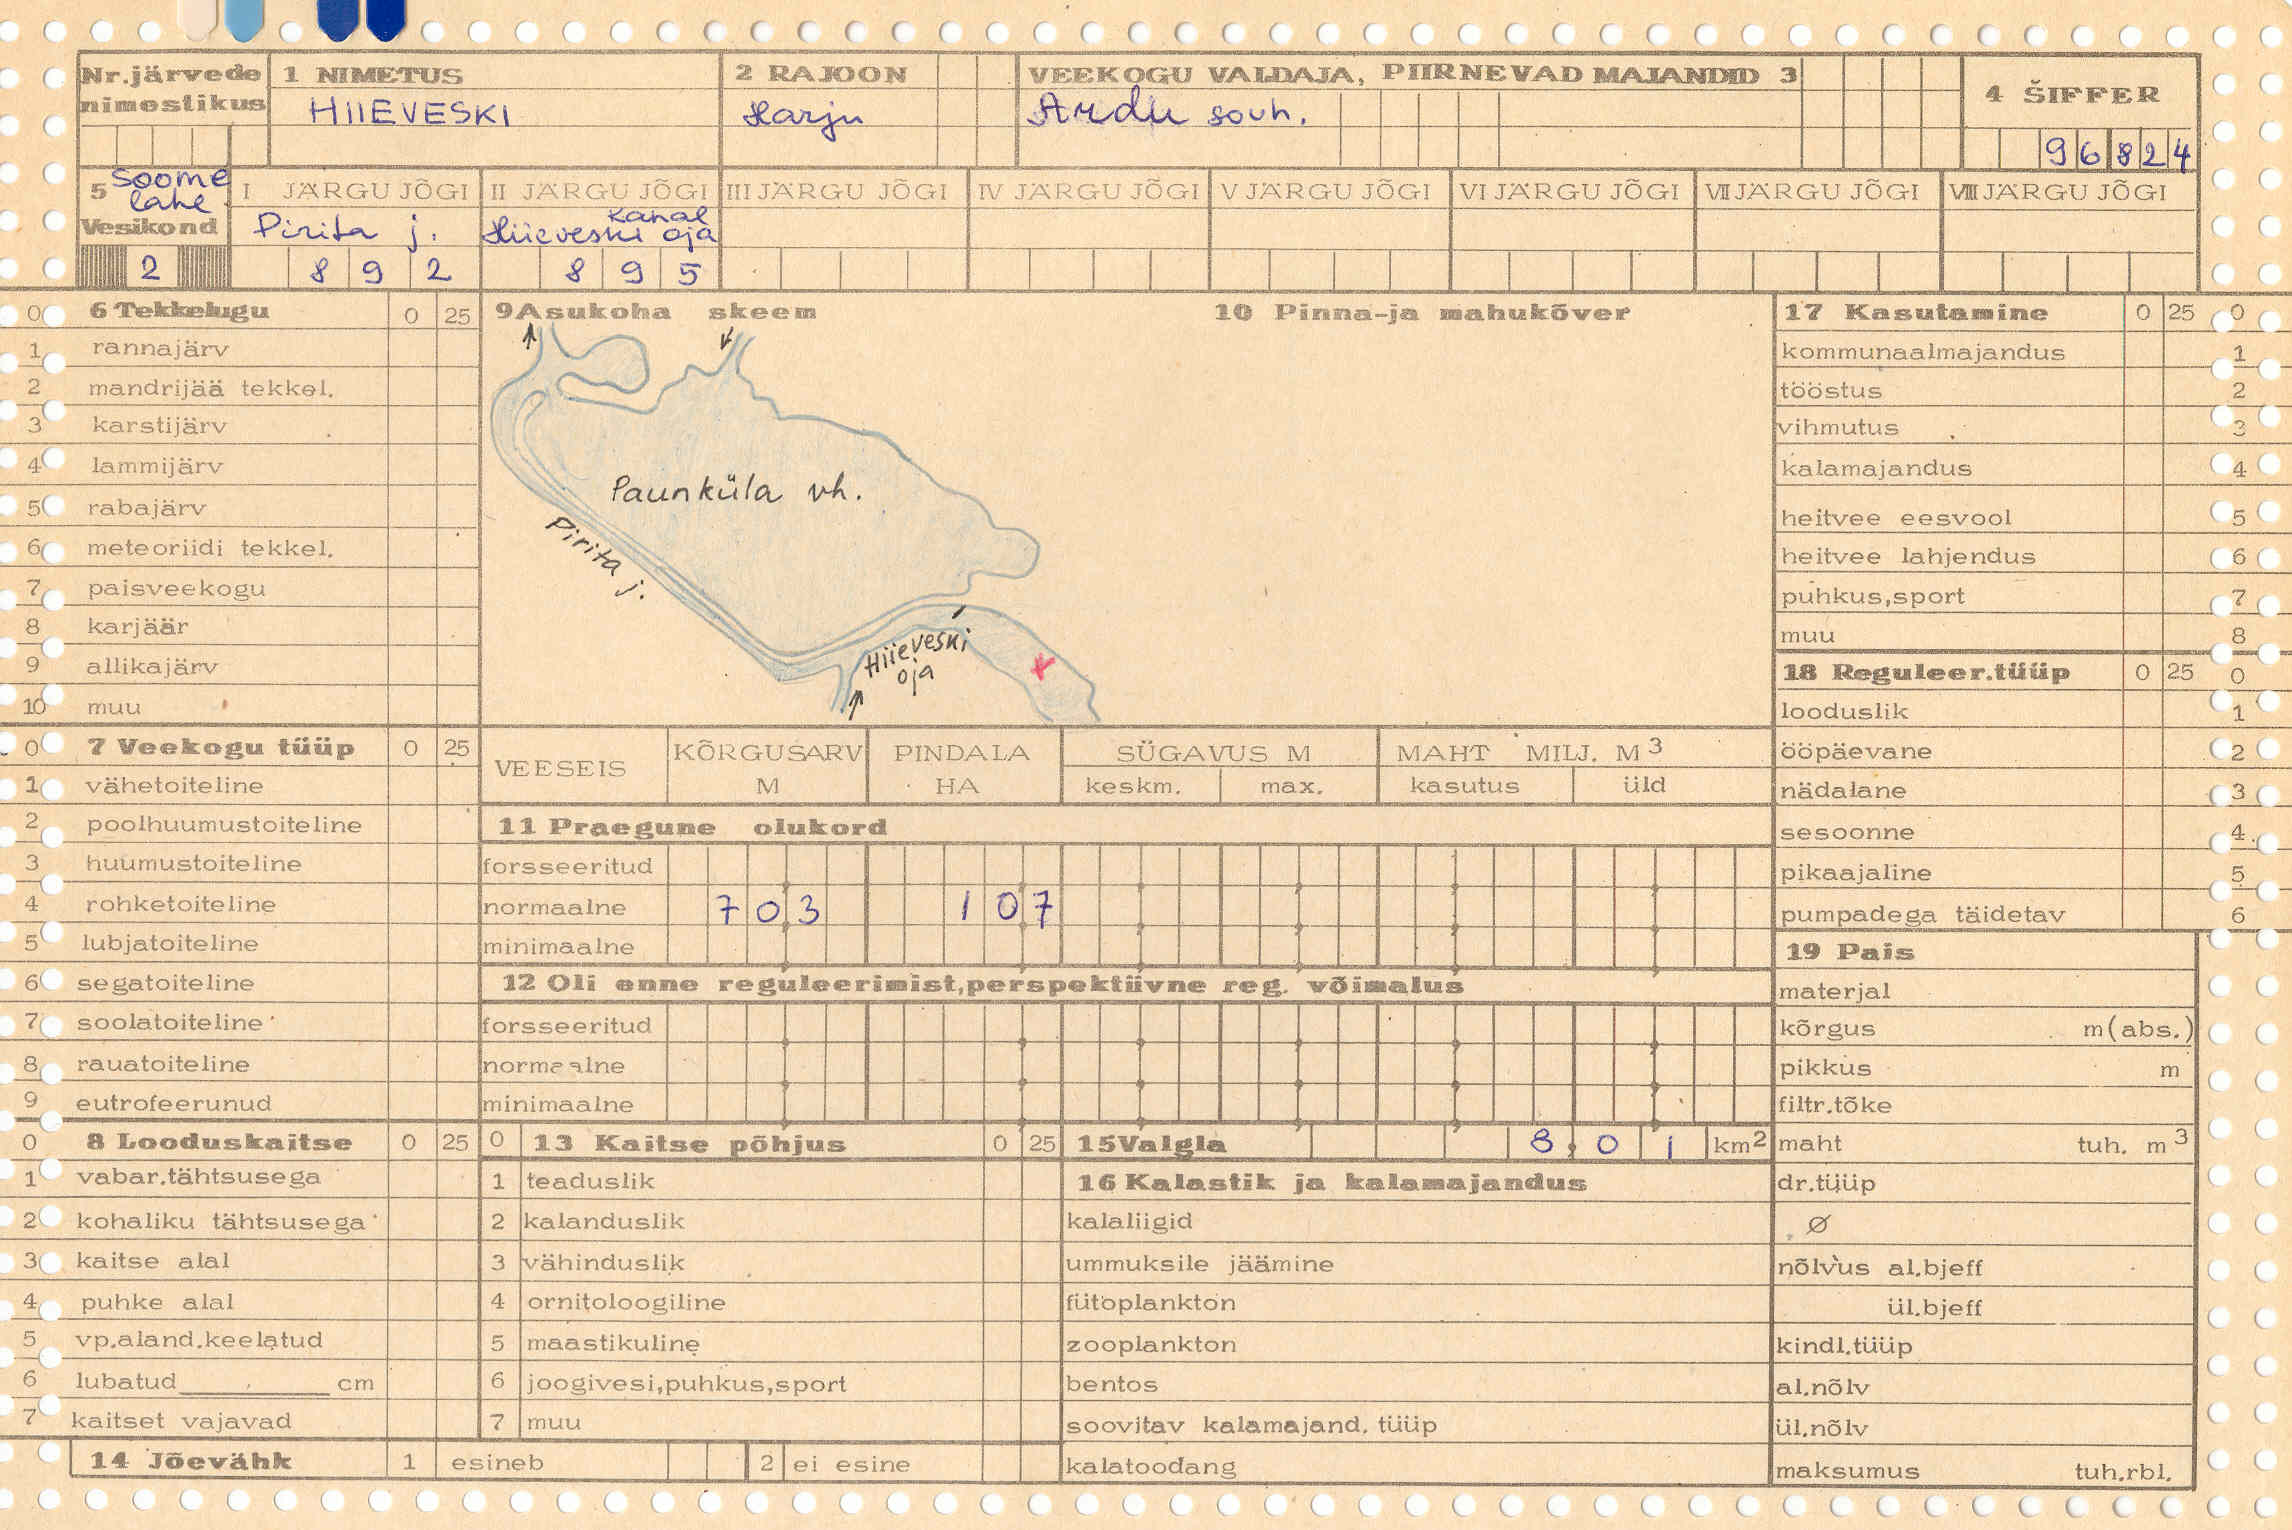 Nr.järvede nimestikus
1 NIMETUS
HIIEVESKI
2 RAJOON
Harju
VEEKOGU VALDAJA, PIIRNEVAD MAJANDID 3
Ardu sovh.
4 ŠIFFER
96824
5 Soome lahe
Vesikond
2
I JÄRGU JÕGI
Pirita j.
892
II JÄRGU JÕGI
Kanal
Hiieveski oja
895
III JÄRGU JÕGI
IV JÄRGU JÕGI
V JÄRGU JÕGI
VI JÄRGU JÕGI
VII JÄRGU JÕGI
VIII JÄRGU JÕGI
0 6 Tekkelugu 0 25
1 rannajärv
2 mandrijää tekkel.
3 karstijärv
4 lammijärv
5 rabajärv
6 meteoriidi tekkel.
7 paisveekogu
8 karjäär
9 allikajärv
10 muu
0 7 Veekogu tüüp 0 25
1 vähetoiteline
2 poolhuumustoiteline
3 huumustoiteline
4 rohketoiteline
5 lubjatoiteline
6 segatoiteline
7 soolatoiteline
8 rauatoiteline
9 eutrofeerunud
0 8 Looduskaitse 0 25
1 vabar.tähtsusega
2 kohaliku tähtsusega
3 kaitse alal
4 puhke alal
5 vp.aland.keelatud
6 lubatud cm
7 kaitset vajavad
14 Jõevähk 1 esineb 2 ei esine
9 Asukoha skeem
10 Pinna-ja mahukõver
Paunküla vh.
Pirita j.
Hiieveski oja
VEESEIS
KÕRGUSARV M
PINDALA HA
SÜGAVUS M
keskm. max.
MAHT MILJ. M3
kasutus üld
11 Praegune olukord
forsseeritud
normaalne 703 107
minimaalne
12 Oli enne reguleerimist,perspektiivne reg. võimalus
forsseeritud
normaalne
minimaalne
0 13 Kaitse põhjus 0 25
1 teaduslik
2 kalanduslik
3 vähinduslik
4 ornitoloogiline
5 maastikuline
6 joogivesi,puhkus,sport
7 muu
15 Valgla 8,01 km2
16 Kalastik ja kalamajandus
kalaliigid
ummuksile jäämine
fütoplankton
zooplankton
bentos
soovitav kalamajand. tüüp
kalatoodang
17 Kasutamine 0 25 0
kommunaalmajandus 1
tööstus 2
vihmutus 3
kalamajandus 4
heitvee eesvool 5
heitvee lahjendus 6
puhkus,sport 7
muu 8
18 Reguleer.tüüp 0 25 0
looduslik 1
ööpäevane 2
nädalane 3
sesoonne 4
pikaajaline 5
pumpadega täidetav 6
19 Pais
materjal
kõrgus m(abs.)
pikkus m
filtr.tõke
maht tuh. m3
dr.tüüp
Ø
nõlvus al.bjeff
ül.bjeff
kindl.tüüp
al.nõlv
ül.nõlv
maksumus tuh.rbl.